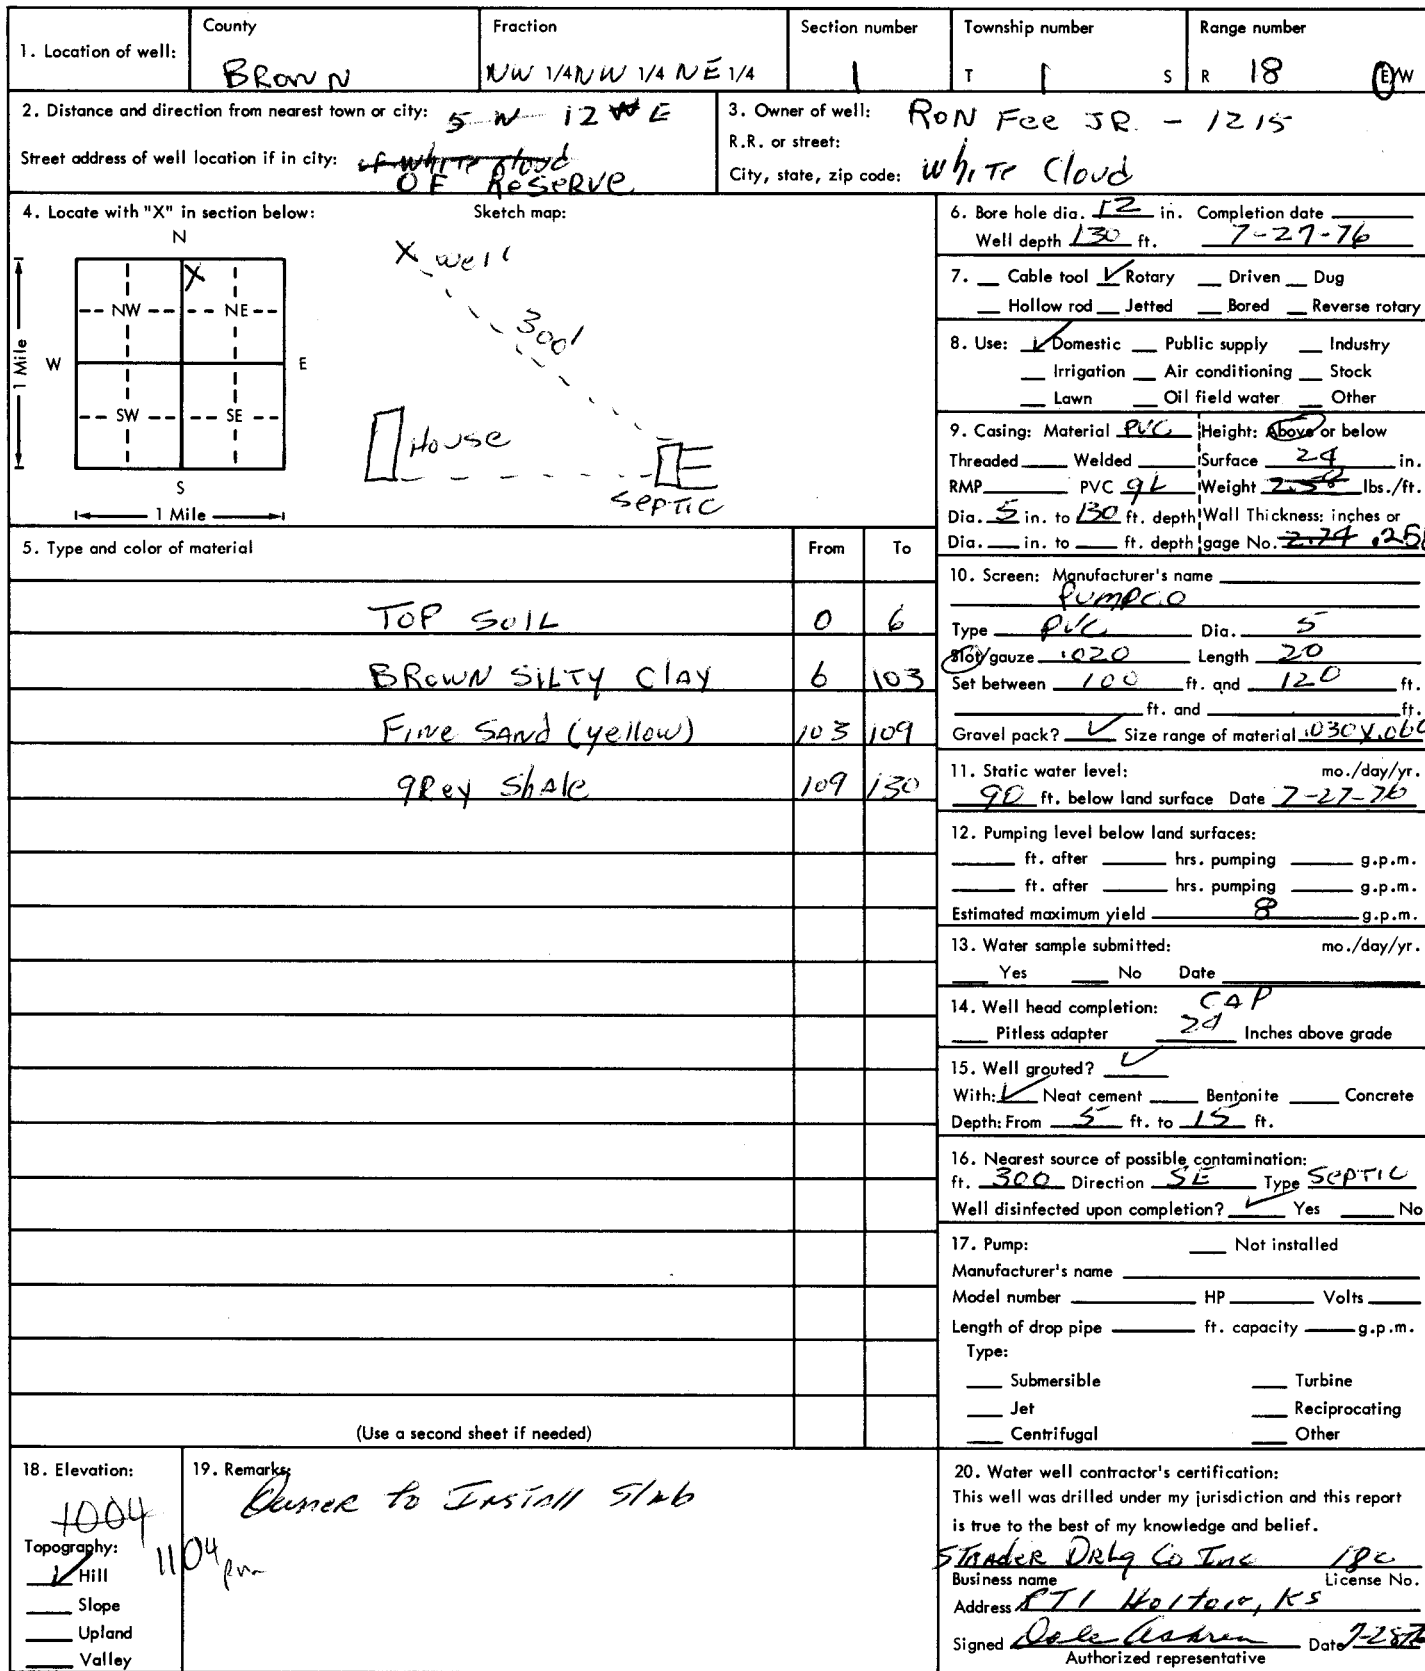 1. Location of well:
County
BROWN
Fraction
NW 1/4 NW 1/4 NE 1/4
Section number
1
Township number
T 1 S
Range number
R 18 E/W
2. Distance and direction from nearest town or city: 5 N 12 W E
Street address of well location if in city: of White Cloud
OF RESERVE
3. Owner of well: RON Fee JR. - 1215
R.R. or street:
City, state, zip code: White Cloud
4. Locate with "X" in section below:
N
X
NW NE
W E
SW SE
S
1 Mile
1 Mile
Sketch map:
X well
300'
House
SEPTIC
5. Type and color of material From To
TOP SOIL 0 6
BROWN SILTY CLAY 6 103
FINE SAND (yellow) 103 109
gRey ShAle 109 130
(Use a second sheet if needed)
6. Bore hole dia. 12 in. Completion date
Well depth 130 ft. 7-27-76
7. Cable tool ✓ Rotary Driven Dug
Hollow rod Jetted Bored Reverse rotary
8. Use: ✓ Domestic Public supply Industry
Irrigation Air conditioning Stock
Lawn Oil field water Other
9. Casing: Material PVC Height: Above or below
Threaded Welded Surface 24 in.
RMP PVC gL Weight 2.58 lbs./ft.
Dia. 5 in. to 130 ft. depth Wall Thickness: inches or
Dia. in. to ft. depth gage No. 2.74 .258
10. Screen: Manufacturer's name
Pumpco
Type PVC Dia. 5
Slot/gauze .020 Length 20
Set between 100 ft. and 120 ft.
ft. and ft.
Gravel pack? ✓ Size range of material .030 X .060
11. Static water level: mo./day/yr.
90 ft. below land surface Date 7-27-76
12. Pumping level below land surfaces:
ft. after hrs. pumping g.p.m.
ft. after hrs. pumping g.p.m.
Estimated maximum yield 8 g.p.m.
13. Water sample submitted: mo./day/yr.
Yes No Date
14. Well head completion: CAP
Pitless adapter 24 Inches above grade
15. Well grouted? ✓
With: ✓ Neat cement Bentonite Concrete
Depth: From 5 ft. to 15 ft.
16. Nearest source of possible contamination:
ft. 300 Direction SE Type SEPTIC
Well disinfected upon completion? ✓ Yes No
17. Pump: Not installed
Manufacturer's name
Model number HP Volts
Length of drop pipe ft. capacity g.p.m.
Type:
Submersible Turbine
Jet Reciprocating
Centrifugal Other
18. Elevation:
1004
1104
Topography:
✓ Hill
Slope
Upland
Valley
19. Remarks:
Owner to Install Slab
20. Water well contractor's certification:
This well was drilled under my jurisdiction and this report
is true to the best of my knowledge and belief.
STRADER DRLG Co Inc 180
Business name License No.
Address RT 1 Holton, KS
Signed Dale Date 7-28-76
Authorized representative